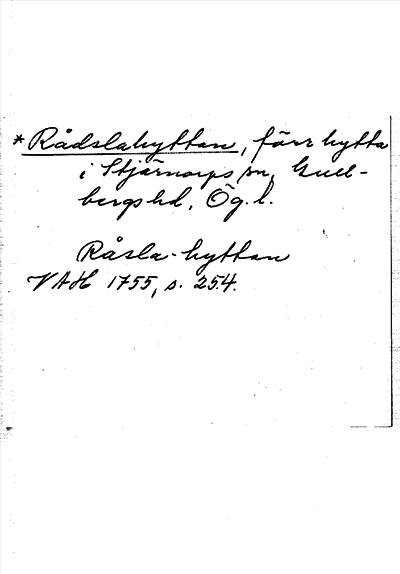 * Rådslahyttan, förr hytta
i Stjärnorps sn, Gull-
bergs hd, Ög. l.
Råsla-hyttan
VAH 1755, s. 254.